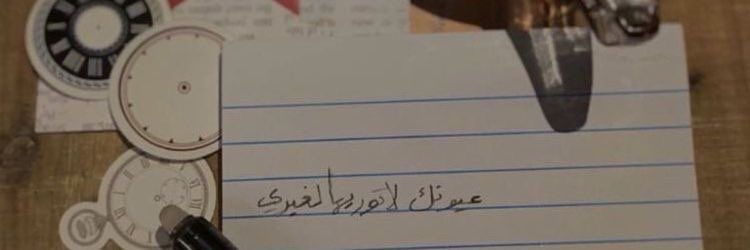 عيونك لا توريها لغيري